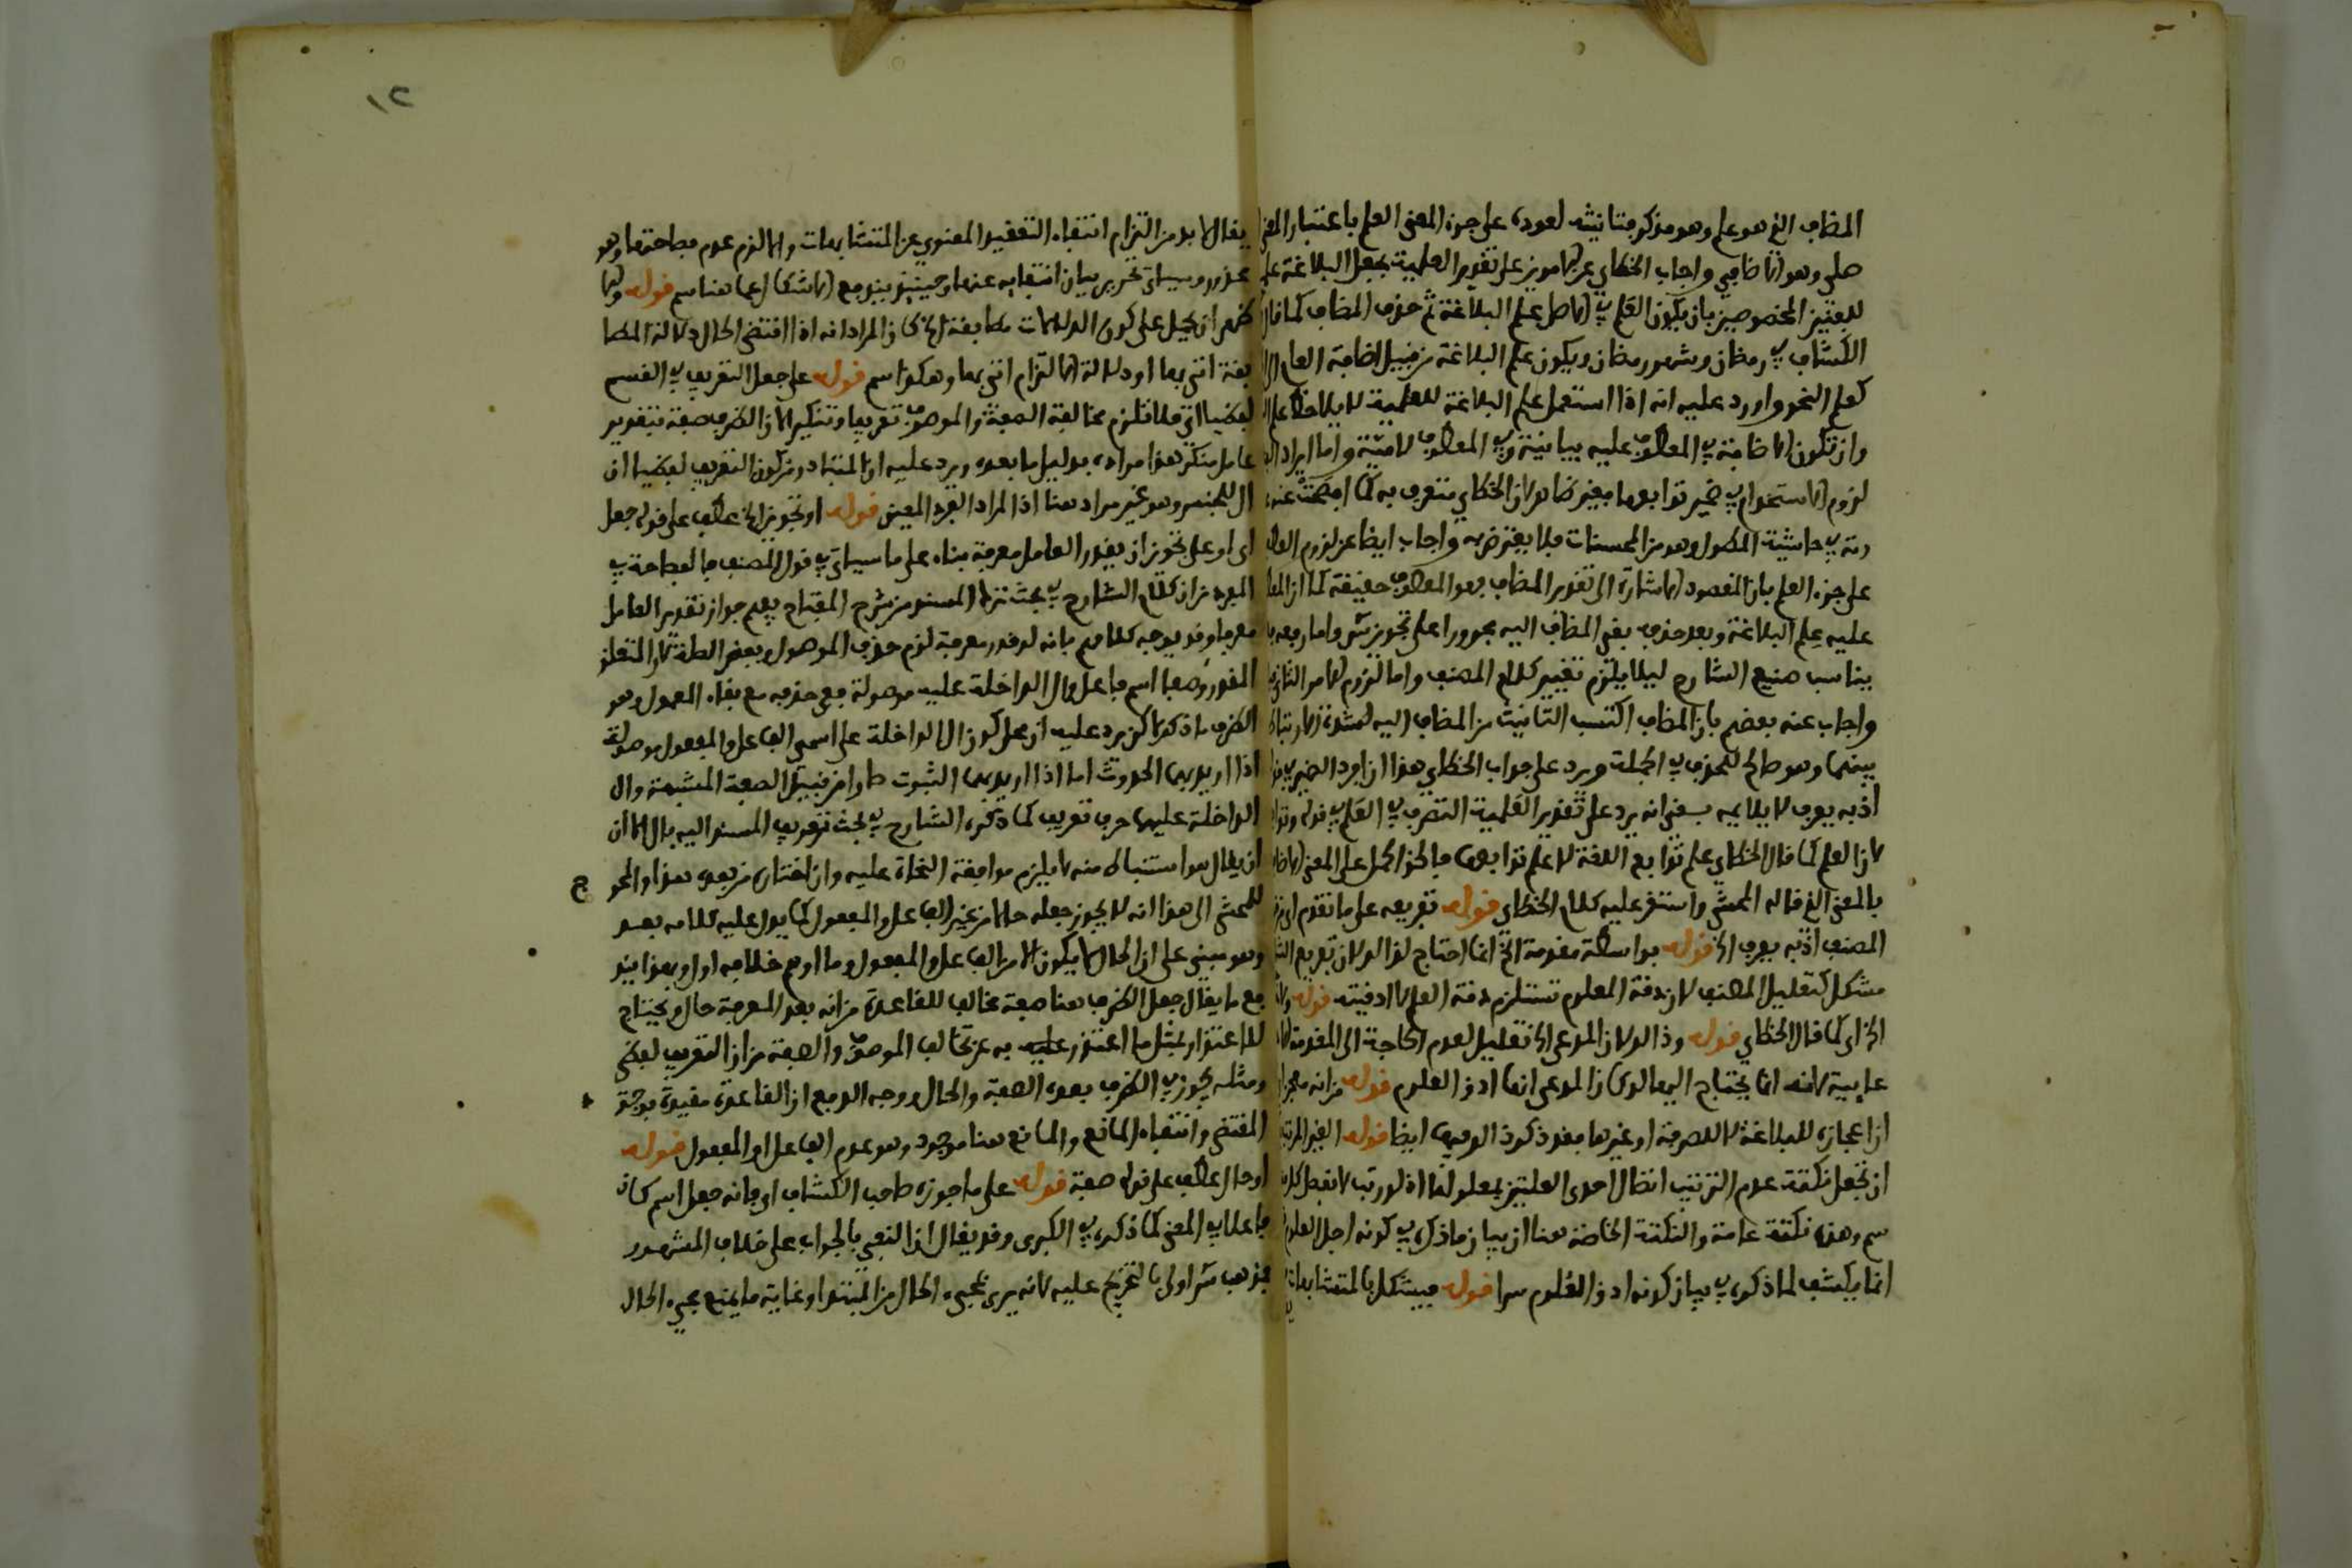 المضاف الذي هو علم وهو مذكر فتانيثه لعوده على جزء المعنى العلم باعتبار المعنى
صلي وهو الاضافي واجاب الخطاي عن الامرين على تقدير العلمية بجعل البلاغة علم
للفنين المخصوصين بان يكون العلم في الاصل علم البلاغة ثم حذف المضاف كما قال
الكشاف في رمضان وشهر رمضان ويكون علم البلاغة من قبيل اضافة العام الى
كعلم النحو واورد عليه انه اذا استعمل علم البلاغة للعلمية لا يلاحظ
وان تكون الاضافة في المعطوف عليه بيانية وفي المعطوف لامية واما ايراد
لزوم الاستخدام في ضمير توابعها فغير ضار لان الخطاي متعرف به كما افصحت عنه
في حاشية المطول وهو من المحسنات فلا يعترض به واجاب ايضا عن لزوم
على جزء العلم بان المقصود الاشارة الى تقدير المضاف فهو المعطوف حقيقة كما ان
عليه علم البلاغة وبعد حذف بقي المضاف اليه مجرورا على تجويز س واما رفعه
يناسب صنيع الشارح ليلا يلزم تغيير كلام المصنف واما لزوم الامر الثاني
واجاب عنه بعضهم بان المضاف اكتسب التانيث من المضاف اليه لشدة الارتباط
بينهما وهو صالح للحذف في الجملة ويرد على جواب الخطاي هذا افراد الضمير في
اذ به يعرف لا يلايمه بقي انه يرد على تقدير العلمية التصرف في العلم في قوله
لان العلم كما قال الخطاي علم توابع البلاغة لا علم توابعها فالحق الحمل على المعنى
بالمعنى الذي قاله المحشي واستقر عليه كلام الخطاي قوله تفريعه على ما تقدم
المصنف اذ به يعرف الخ قوله بواسطة مقدمة الخ انما احتاج لذالك لان تفريع
مشكل كتعليل المصنف لان دقة المعلوم تستلزم دقة العلم لا ادقيته قوله
الخ اي كما قال الخطاي قوله وذالك لان المدعى الخ تعليل لعدم الحاجة الى المقدمة
عابية لانه انما يحتاج اليها لو كان المدعى انها ادق العلوم قوله من انه
ان اعجازه للبلاغة لا للصرفة او غيرها فقد ذكر ذالك فيها ايضا قوله
ان تجعل نكتة عدم الترتيب اتصال احدى العلتين بمعلولها اذ لو رتب لانفصل
سم وهذه نكتة عامة والنكتة الخاصة هنا ان بيان ما ذكر في كونه اجل العلوم
انما يكشف لما ذكره في بيان كونه ادق العلوم سرا قوله فيشكل بالمتشابهات
يقال لا بد من التزام انتفاء التعقيد المعنوي عن المتشابهات والا لزم عدم فصاحتها وهو
محذور وسياتي تحرير بيان انتفايه عنها وحينئذ يندفع الاشكال عما هنا سم قوله ولا
يخفى ان يحيل على كون الدلالات مطابقة الخ كان المراد انه اذا اقتضى الحال دلالة المطا
بقة اتى بها او دلالة الالتزام اتى بها وهكذا سم قوله على جعل التعريف في القسم
لفظيا اي فلا تلزم مخالفة الصفة والموصوف تعريفا وتنكيرا لان الظرف صفة بتقدير
عامل منكر هذا مراده بدليل ما بعده ويرد عليه ان المتبادر من كون التعريف لفظيا ان
ال للجنس وهو غير مراد هنا اذ المراد الفرد المعين قوله او تجويز الخ عطف على قوله جعل
اي او على تجويز ان يقدر العامل معرفة بناء على ما سياتي في قول المصنف فالفصاحة في
المفرد من ان كلام الشارح في بحث ترك المسند من شرح المفتاح يفهم جواز تقدير العامل
معرفا وقد يوجه كلامهم بانه لو قدر معرفة لزم حذف الموصول وبعض الصلة لان المتعلق
المقدر وصفا اسم فاعل وال الداخلة عليه موصولة فمع حذفه مع بقاء المعمول وهو
الظرف ما ذكر لكن يرد عليه ان محل كون ال الداخلة على اسمي الفاعل والمفعول موصولة
اذا اريد بهما الحدوث اما اذا اريد بهما الثبوت صارا من قبيل الصفة المشبهة وال
الداخلة عليها حرف تعريف كما ذكره الشارح في بحث تعريف المسند اليه بال الا ان
ان يقال هو استنباط منه لا يلزم موافقة النحاة عليه وان اختاره من بعده هذا والمحو
للمحشي الى هذا انه لا يجوز جعله حالا من غير الفاعل والمفعول كما يدل عليه كلامه بعد
وهو مبني على ان الحال لا يكون الا من الفاعل والمفعول وما اوهم خلافه اول وبهذا يند
فع ما يقال جعل الظرف هنا صفة مخالف للقاعدة من انه بعد المعرفة حال ويحتاج
للاعتذار بمثل ما اعتذر به عن تخالف الموصوف والصفة من ان التعريف لفظي
ومثله يجوز في الظرف بعده الصفة والحال ووجه الدفع ان القاعدة مقيدة بوجود
المقتضي وانتفاء المانع والمانع هنا موجود وهو عدم الفاعل او المفعول قوله
او حال عطف على قوله صفة قوله على ما جوزه صاحب الكشاف اي فانه جعل اسم كان
فاعلا في المعنى كما ذكره في الكبرى وقد يقال ان التقصي بالجواب على خلاف المشهور
فمذهب س اولى بالتخريج عليه لانه يرى مجيء الحال من المبتدا وغاية ما يمنع مجيء الحال